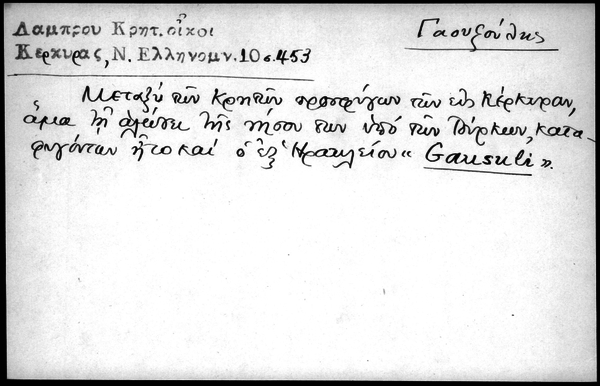 Λαμπρου Κρητ. οἶκοι
Γαουζούλης
Κερκυρας, Ν. Ελληνομν. 10 σ. 453
Μεταξὺ τῶν Κρητῶν προσφύγων τῶν εἰς Κέρκυραν,
ἅμα τῇ ἁλώσει τῆς νήσου των ὑπὸ τῶν Τούρκων, κατα-
φυγόντων ἦτο καὶ ὁ ἐξ Ἡρακλείου « Gausuli ».